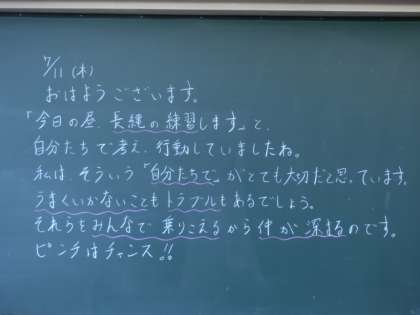 7/11(木)
おはようございます。
「今日の昼、長縄の練習します」と、
自分たちで考え、行動していましたね。
私は、そういう「自分たちで」がとても大切だと思っています。
うまくいかないこともトラブルもあるでしょう。
それらをみんなで乗りこえるから仲が深まるのです。
ピンチはチャンス!!